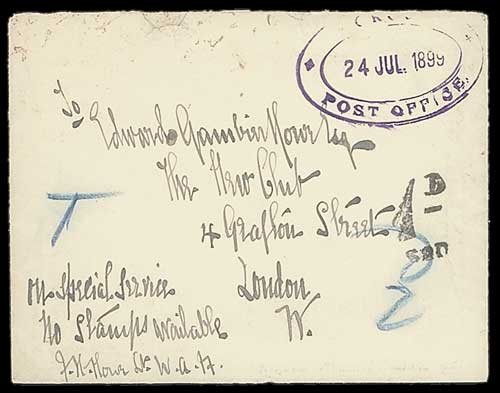 24 JUL. 1899
POST OFFICE.
To
Edward Gambier Howe Esq
The New Club
4 Grafton Street
London
W.
D
On Special Service
No Stamps available